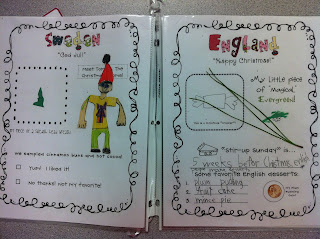 Sweden
"God Jul!"
Meet the
Christmas
We sampled cinnamon buns and hot cocoa!
Yum! I liked it!
No thanks! Not my favorite!
England
"Happy Christmas!"
My little piece
of "Magical"
Evergreen!
"Stir-up Sunday" is...
5 weeks before Christmas when
Some favorite English desserts
1. plum pudding
2. fruit cake
3. mince pie